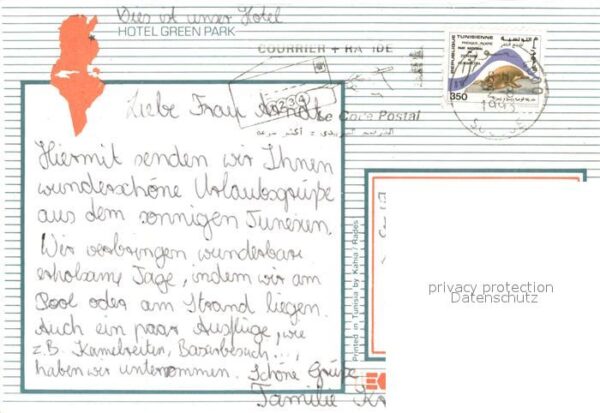 Dies ist unser Hotel
HOTEL GREEN PARK
COURRIER + RA IDE
Le Code Postal
1234
REPUBLIQUE TUNISIENNE
350
1993
SOUSSE
Liebe Frau Arndt
Hiermit senden wir Ihnen
wunderschöne Urlaubsgrüße
aus dem sonnigen Tunesien.
Wir verbringen wunderbare
erholsame Tage, indem wir am
Pool oder am Strand liegen.
Auch ein paar Ausflüge, wie
z.B. Kamelreiten, Basarbesuch...,
haben wir unternommen. Schöne Grüße
Familie Kr
Printed in Tunisia by Kahia / Rades
privacy protection
Datenschutz